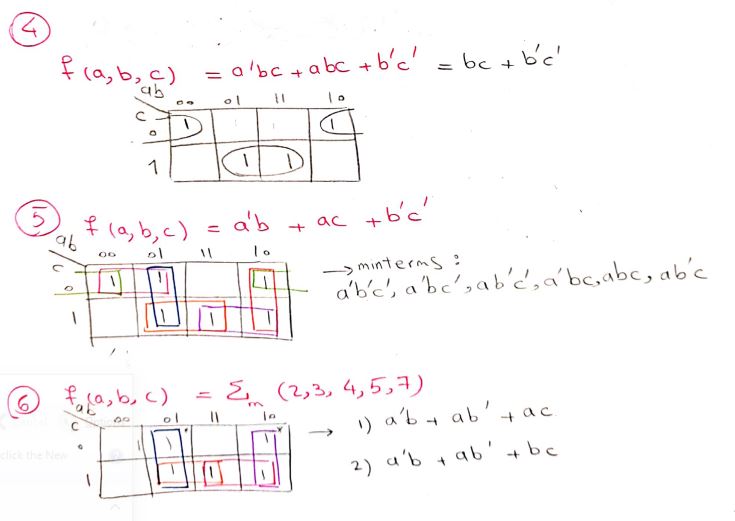 4
f(a,b,c) = a'bc + abc + b'c' = bc + b'c'
ab 00 01 11 10
c
0 1 1
1 1 1
5
f(a,b,c) = a'b + ac + b'c'
ab 00 01 11 10
c
0 1 1 1
1 1 1 1
→ minterms :
a'b'c', a'bc', ab'c', a'bc, abc, ab'c
6
f(a,b,c) = Σm (2,3,4,5,7)
ab 00 01 11 10
c
0 1 1* 1*
1 1 1 1
→ 1) a'b + ab' + ac
2) a'b + ab' + bc
click the New